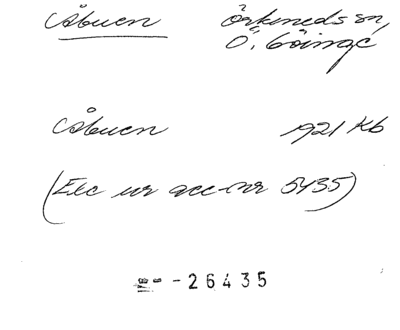 Åbuen Örkeneds sn,
Ö. Göinge
Åbuen 1921 Kb
(Exc ur acc-nr 5435)
-26435